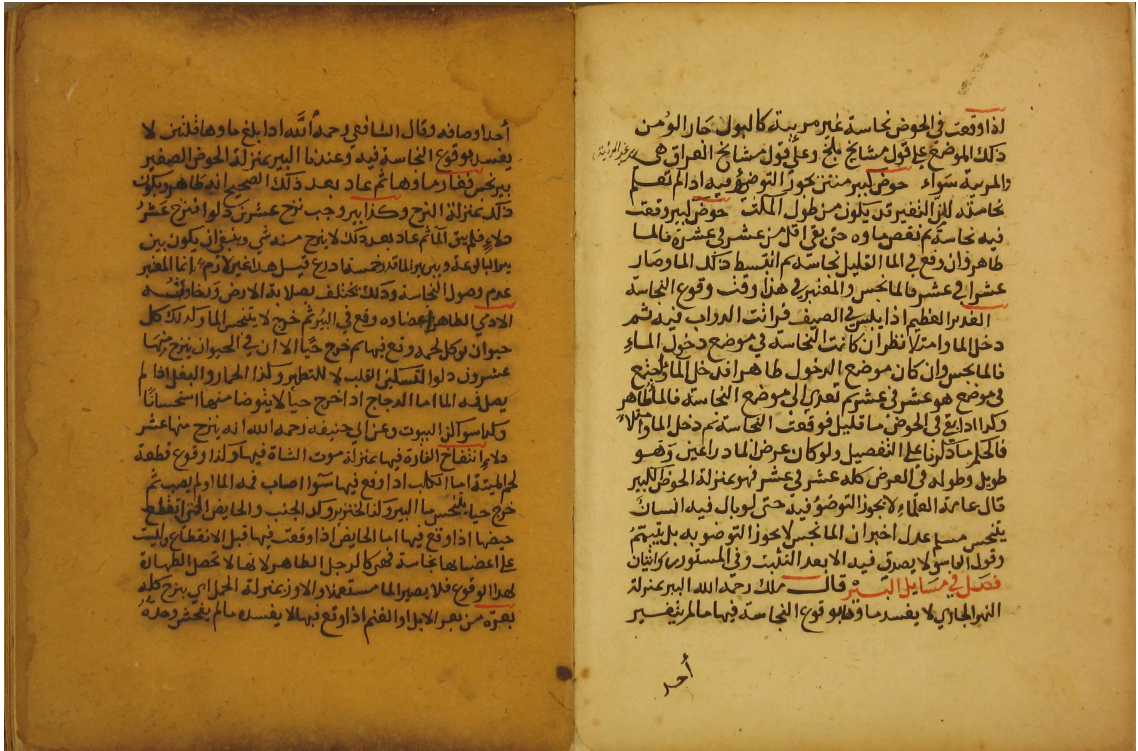 اذا وقعت في الحوض نجاسة غير مريية كالبول جاز الوضو من
ذلك الموضع على قول مشايخ بلخ وعلى قول مشايخ العراق هي
غير المرئية
والمريية سواء حوض كبير منتن يجوز التوضؤ فيه اذا لم تعلم
نجاسته لان التغير قد يكون من طول المكث حوض كبير وقعت
فيه نجاسة ثم نقص ماوه حتى بقي اقل من عشر في عشرة فالما
طاهر وان وقع في الما القليل نجاسة ثم انبسط ذلك الما وصار
عشرا في عشر فالما نجس والمعتبر في هذا وقت وقوع النجاسة
الغدير العظيم اذا يبس في الصيف فراثت الدواب فيه ثم
دخل الما وامتلا نظر ان كانت النجاسة في موضع دخول الماء
فالما نجس وان كان موضع الدخول طاهرا فدخل الما واجتمع
في موضع هو عشر في عشر ثم تعدى الى موضع النجاسة فالما طاهر
وكذا اذا بقي في الحوض ما قليل فوقعت النجاسة ثم دخل الما وامتلا
فالحكم ما ذكرنا على التفصيل ولو كان عرض الما ذراعين وهو
طويل وطوله في العرض كله عشر في عشر فهو بمنزلة الحوض الكبير
قال عامة العلماء لا يجوز التوضؤ فيه حتى لو بال فيه انسان
يتنجس مسلم عدل اخبر ان الما نجس لا يجوز التوضو به بل يتيمم
وقول الفاسق لا يصدق فيه الا بعد التثبت وفي المستور روايتان
فصل في مسايل البير قال ملك رحمه الله البير بمنزلة
النهر الجاري لا يفسد ماوها بوقوع النجاسة فيها ما لم يتغير
احد
أحد اوصافه وقال الشافعي رحمه الله اذا بلغ ماوها قلتين لا
يفسد بوقوع النجاسة فيه وعندنا البير بمنزلة الحوض الصغير
بير نجس فغار ماوها ثم عاد بعد ذلك الصحيح انه طاهر ويكون
ذلك بمنزلة النزح وكذا بير وجب نزح عشرين دلوا فنزح عشر
دلاء فلم يبق الما ثم عاد بعد ذلك لا ينزح منه شي وينبغي ان يكون بين
بير البالوعة وبين بير الما قدر خمسة اذرع قيل هذا غير لازم انما المعتبر
عدم وصول النجاسة وذلك يختلف بصلابة الارض ورخاوته
الادمي الطاهر اعضاوه وقع في البير ثم خرج لا يتنجس الما وكذلك كل
حيوان يوكل لحمه وقع فيها ثم خرج حيا الا ان في الحيوان ينزح منها
عشرون دلوا لتسكين القلب لا للتطهير وكذا الحمار والبغل اذا لم
يصل فمه الما اما الدجاج اذا خرج حيا لا يتوضا منها استحسانا
وكذا سواكن البيوت وعن ابي حنيفه رحمه الله انه ينزح منها عشر
دلاء انتفاخ الفارة فيها بمنزلة موت الشاة فيها وكذا وقوع قطعة
لحم الميتة اما الكلب اذا وقع فيها سوا اصاب فمه الما او لم يصب ثم
خرج حيا يتنجس ما البير وكذا الخنزير وكذ الجنب والحايض التي انقطع
حيضها اذا وقع فيها اما الحايض اذا وقعت فيها قبل الانقطاع وليست
على اعضايها نجاسة فهي كالرجل الطاهر لانها لا تحصل الطهارة
بهذا الوقوع فلا يصير الما مستعملا والاوز بمنزلة الحمل اي ينزح كله
بعرة من بعر الابل او الغنم اذا وقع فيها لا يفسده ما لم يفحش وحده